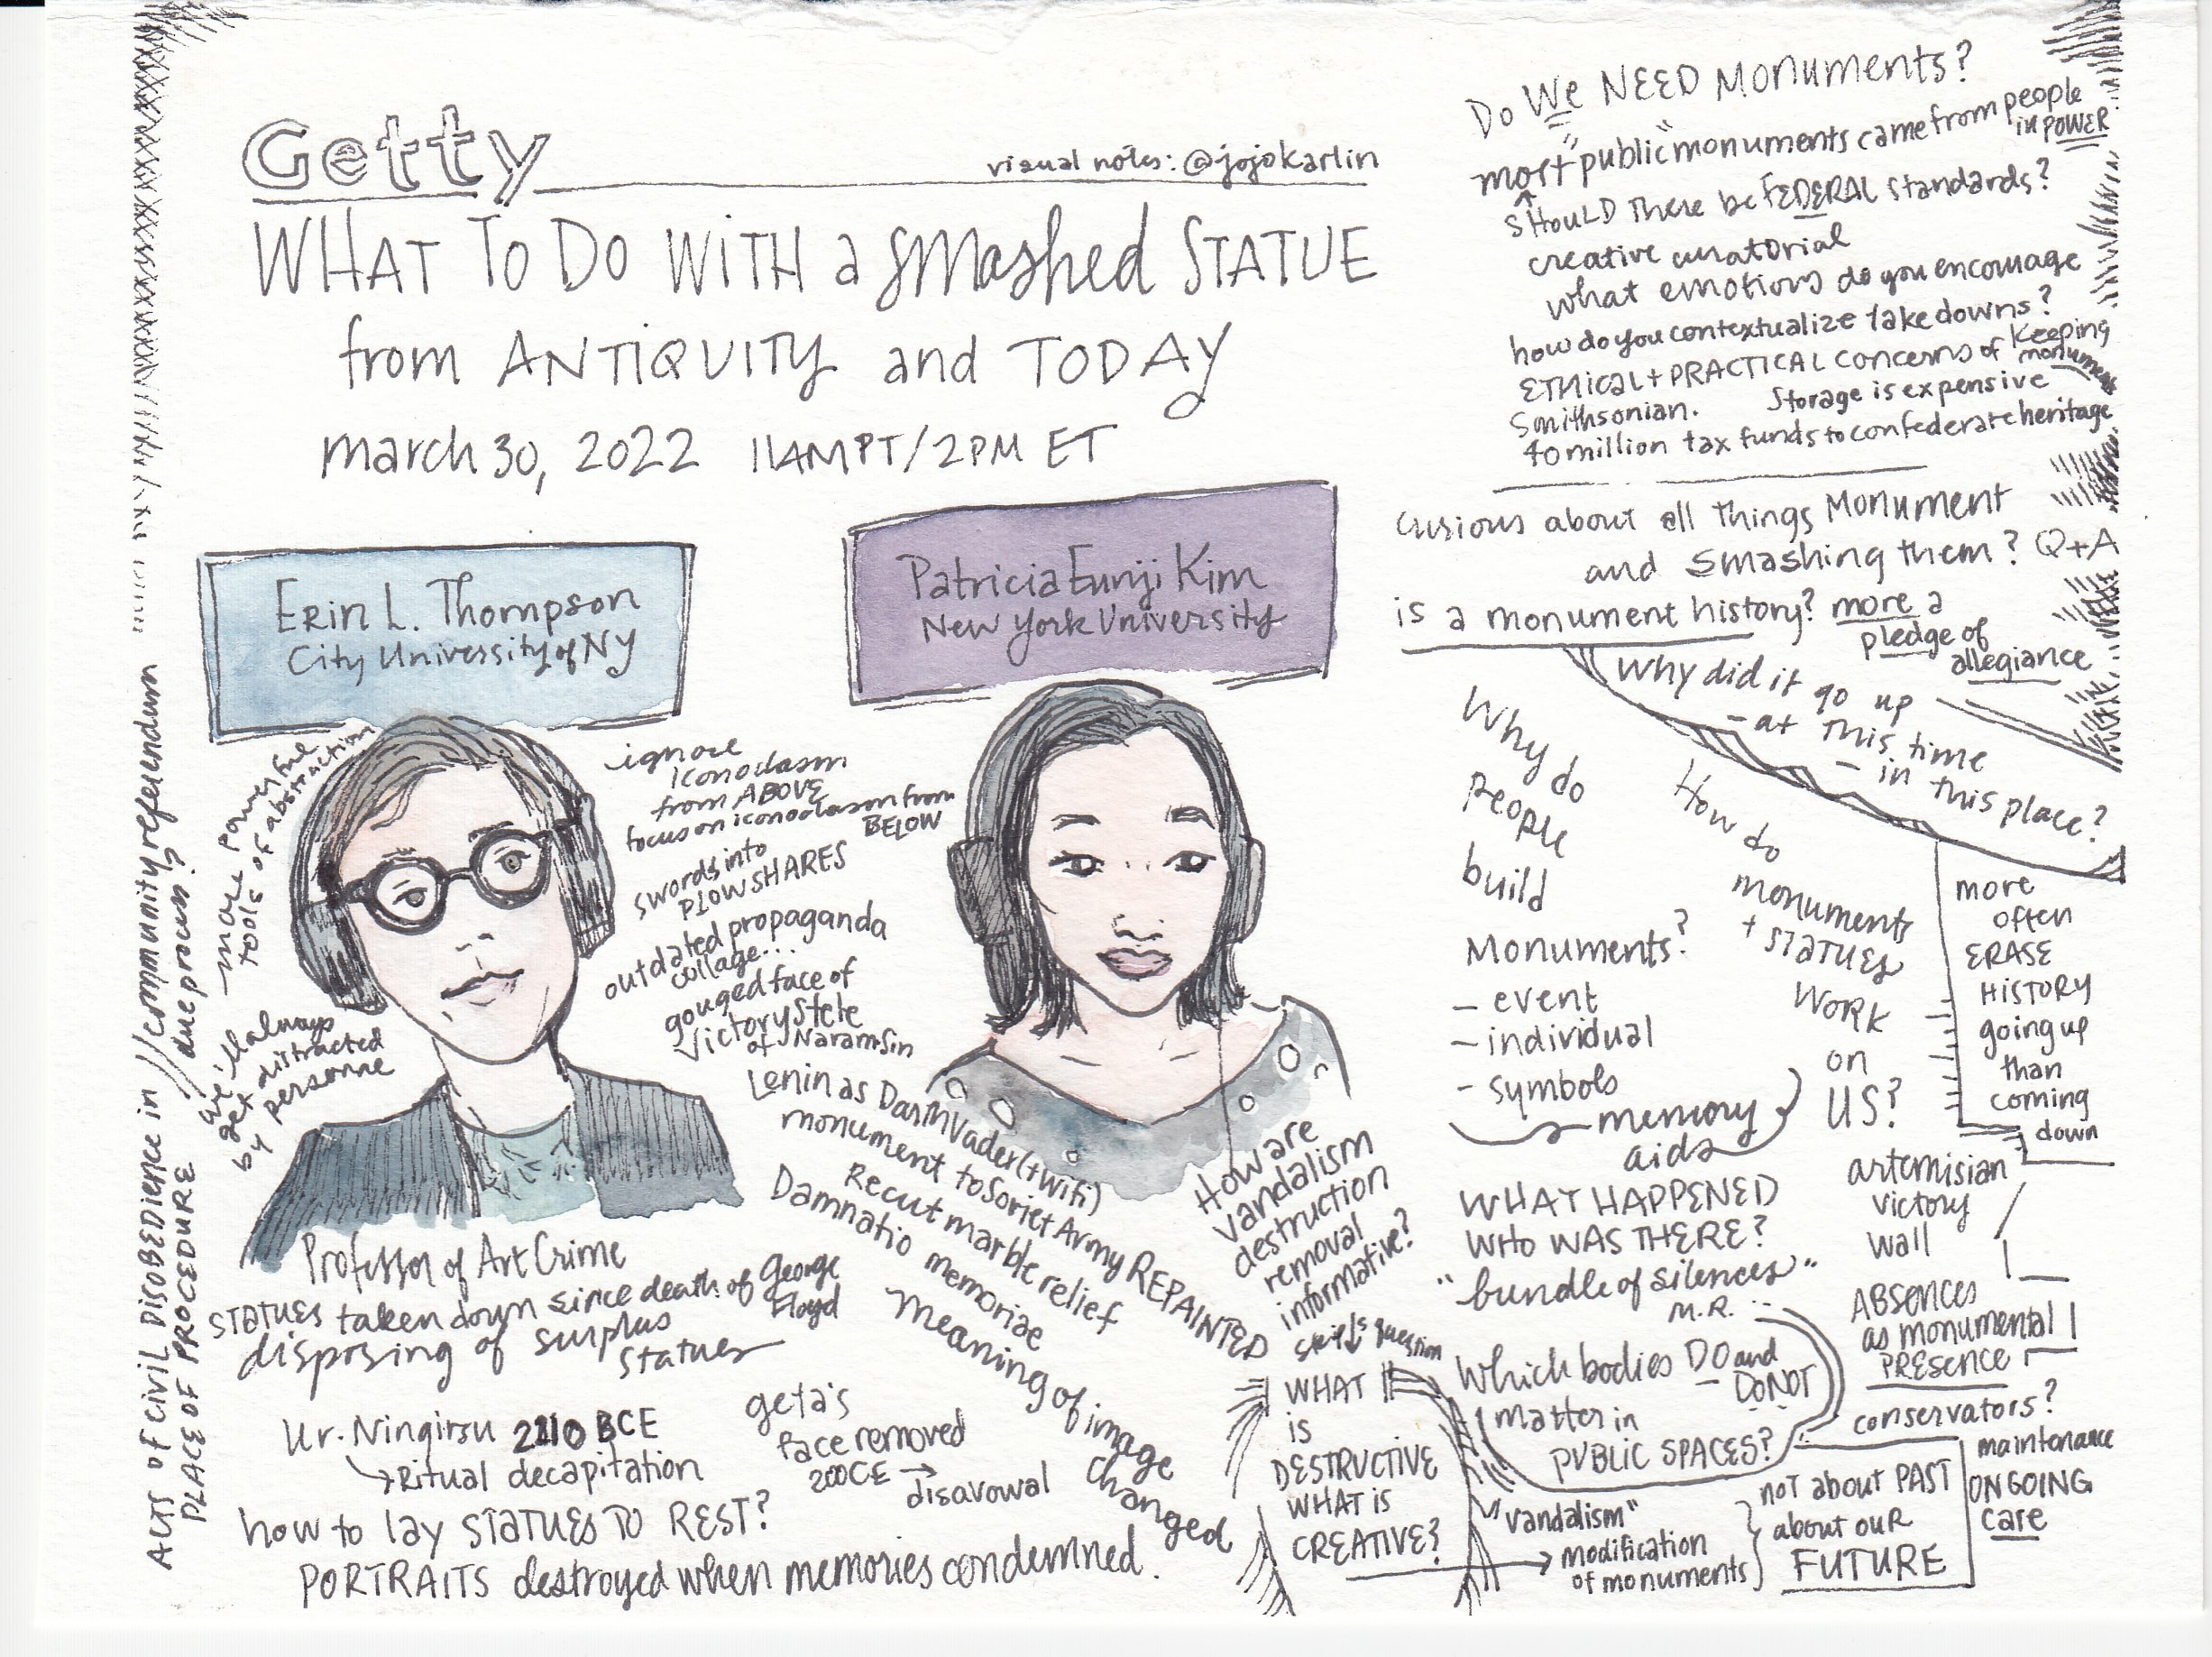 Getty
visual notes: @jojokarlin
WHAT TO DO WITH a smashed STATUE
from ANTIQUITY and TODAY
march 30, 2022 11AM PT/2PM ET
Erin L. Thompson
City University of NY
Patricia Eunji Kim
New York University
Acts of civil DISOBEDIENCE in // community referendum
PLACE OF PROCEDURE / due process?
more powerful
tools of abstraction
we'll always
get distracted
by personne
ignore
iconoclasm
from ABOVE
focus on iconoclasm from
BELOW
swords into
PLOWSHARES
outdated propaganda
collage...
gouged face of
Victory Stele
of Naramsin
Lenin as Darth Vader (+wifi)
monument to Soviet Army REPAINTED
Recut marble relief
Damnatio memoriae
Meaning of image
changed
Professor of Art Crime
STATUES taken down since death of George
Floyd
disposing of surplus
statues
Ur-Ningirsu 2110 BCE
→Ritual decapitation
geta's
face removed
200CE →
disavowal
how to lay STATUES TO REST?
PORTRAITS destroyed when memories condemned.
How are
vandalism
destruction
removal
informative?
question
WHAT
is
DESTRUCTIVE
WHAT IS
CREATIVE?
Do We NEED Monuments?
most "public" monuments came from people
in POWER
SHOULD There be FEDERAL standards?
creative curatorial
what emotions do you encourage
how do you contextualize takedowns?
ETHICAL + PRACTICAL concerns of keeping
monuments
Smithsonian. Storage is expensive
40 million tax funds to confederate heritage
curious about all things Monument
and smashing them? Q+A
is a monument history? more a
pledge of
allegiance
Why did it go up
- at this time
- in this place?
Why do
People
build
Monuments?
- event
- individual
- symbols
memory
aids
How do
monuments
+ STATUES
WORK
on
US?
more
often
ERASE
HISTORY
going up
than
coming
down
WHAT HAPPENED
WHO WAS THERE?
"bundle of silences"
M.R.
artemisian
victory
wall
ABSENCES
as monumental
PRESENCE
Which bodies DO and
DO NOT
matter in
PUBLIC SPACES?
conservators?
maintenance
ONGOING
care
"vandalism"
modification
of monuments
not about PAST
about our
FUTURE